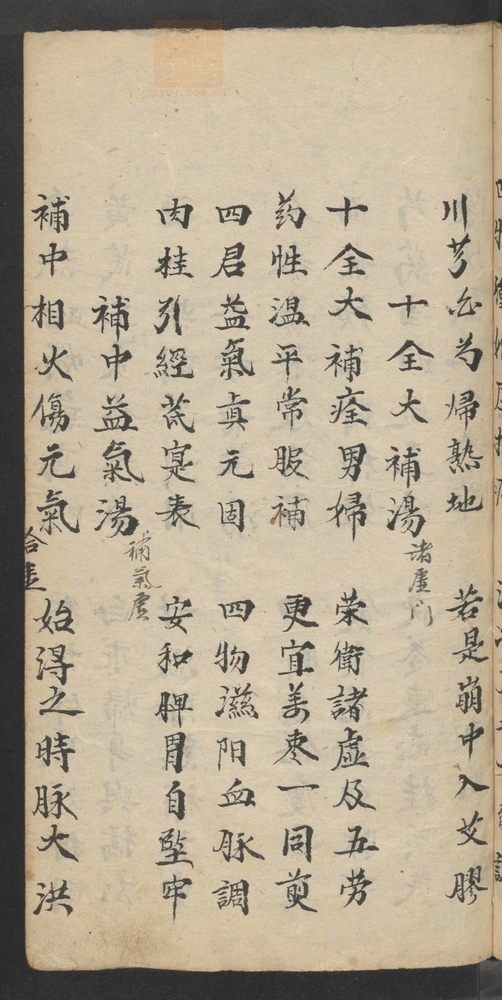 川芎白芍归熟地　若是崩中入艾膠
十全大補湯　諸虛門
十全大補痊男婦　荣衛諸虛及五劳
药性温平常服補　更宜姜枣一同煎
四君益氣真元固　四物滋阳血脉調
肉桂引經芪寔表　安和脾胃自坚牢
補中益氣湯　補氣虛
補中相火傷元氣　始得之時脉大洪